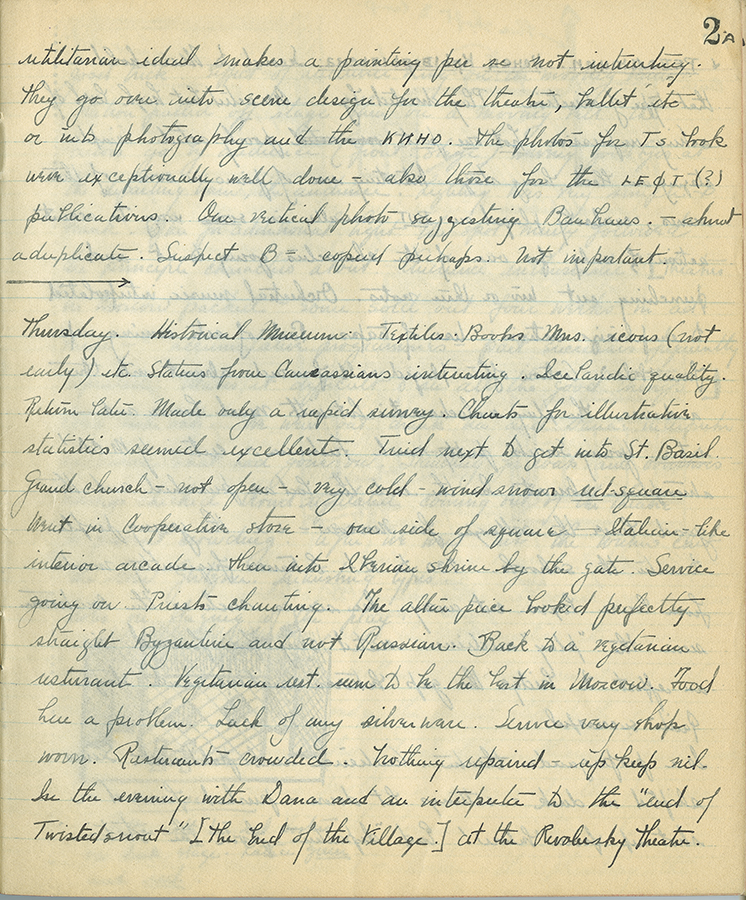 2A
utilitarian ideal makes a painting per se not interesting.
They go over into scene design for the theatre, ballet etc
or into photography and the КИНО. The photos for T's book
were exceptionally well done – also those for the ЛЕФТ (?)
publications. One vertical photo suggesting Bauhaus. – almost
a duplicate. Suspect B = copied perhaps. Not important.
Thursday. Historical Museum: Textiles: Books Mns. icons (not
early) etc. Statues from Caucassians interesting. Icelandic quality.
Return later. Made only a rapid survey. Charts for illustrative
statistics seemed excellent. Tried next to get into St. Basil.
Grand church – not open – very cold – wind snow red-square
Went in Cooperative store – one side of square – Italian-like
interior arcade. Then into Iberian shrine by the gate. Service
going on Priests chanting. The altar piece looked perfectly
straight Byzantine and not Russian. Back to a vegetarian
resturant. Vegetarian rest. seem to be the best in Moscow. Food
here a problem. Lack of any silverware. Service very shop
worn. Resturants crowded. Nothing repaired – up keep nil.
In the evening with Dana and an interpreter to the "end of
Twistedsnout" [The End of the Village.] at the Revolusky Theatre.